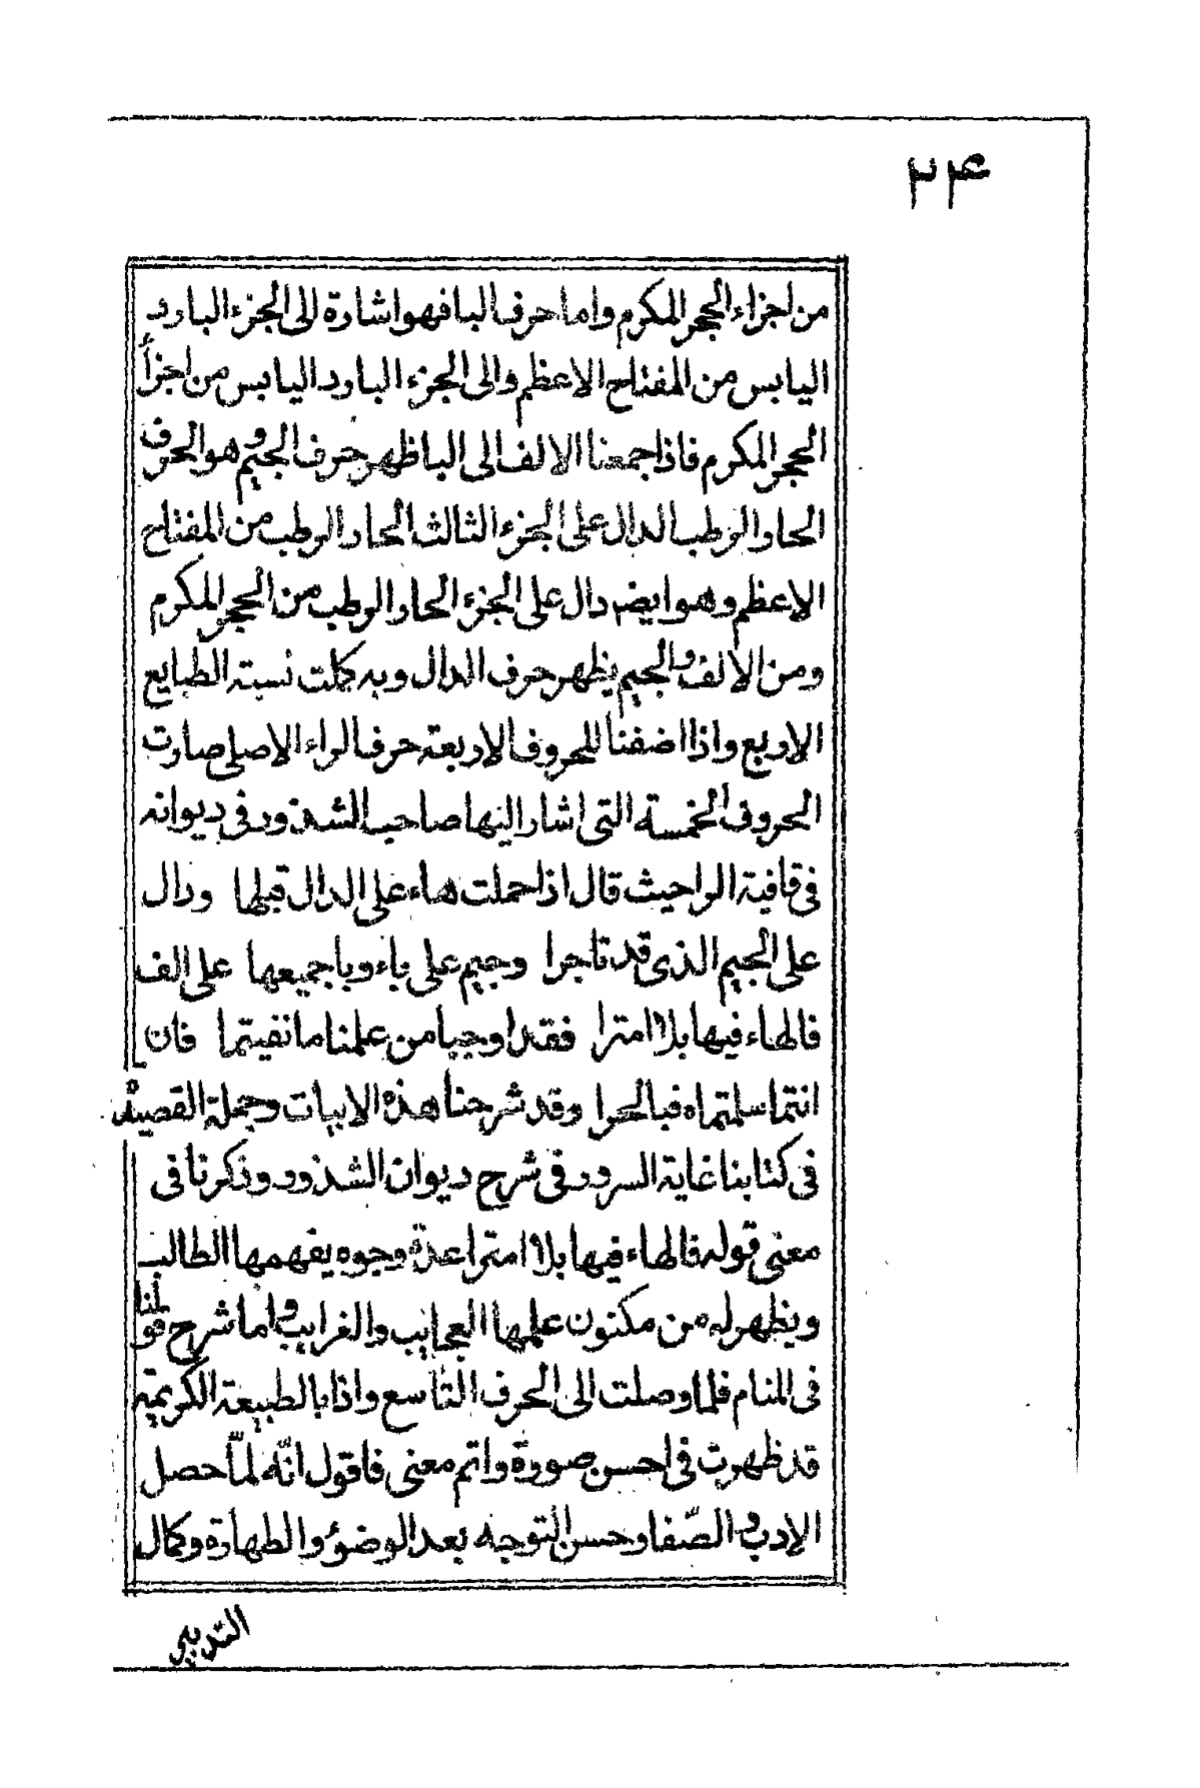 ٢۴
من اجزاء الحجر المكرم واما حرف البا فهو اشارة الى الجزء البارد
اليابس من المفتاح الاعظم والى الجزء البارد اليابس من اجزأ
الحجر المكرم فاذا جمعنا الالف الى البا ظهر حرف الجيم وهو الحرف
الحار الرطب الدال على الجزء الثالث الحار الرطب من المفتاح
الاعظم وهو ايضا دال على الجزء الحار الرطب من الحجر المكرم
ومن الالف والجيم يظهر حرف الدال وبه كملت نسبة الطبايع
الاربع واذا اضفنا للحروف الاربعة حرف الراء الاصلى صارت
الحروف الخمسة التى اشار اليها صاحب الشذور فى ديوانه
فى قافية الرا حيث قال اذا حملت هاء على الدال قبلها ودال
على الجيم الذى قد تاجرا وجيم على باء وبا جميعها على الف
فالهاء فيها بلا امترا فقد اوجبا من علمنا ما نفيتما فان
انتما سلمتماه فبالحرا وقد شرحنا هذه الابيات وجملة القصيدة
فى كتابنا غاية السرور فى شرح ديوان الشذور وذكرنا فى
معنى قوله فالهاء فيها بلا امترا عدة وجوه يفهمها الطالب
ويظهر له من مكنون علمها العجايب والغرايب واما شرح قولنا
فى المنام فلما وصلت الى الحرف التاسع واذا بالطبيعة الكريمة
قد ظهرت فى احسن صورة واتم معنى فاقول انّه لمّا حصل
الادب والصّفا وحسن التوجه بعد الوضؤ والطهارة وكمال